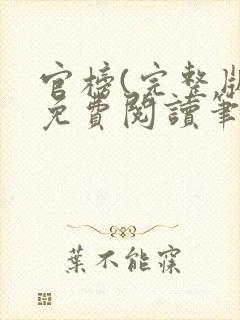 官榜(完整版
免費閱讀筆
葉不能寐